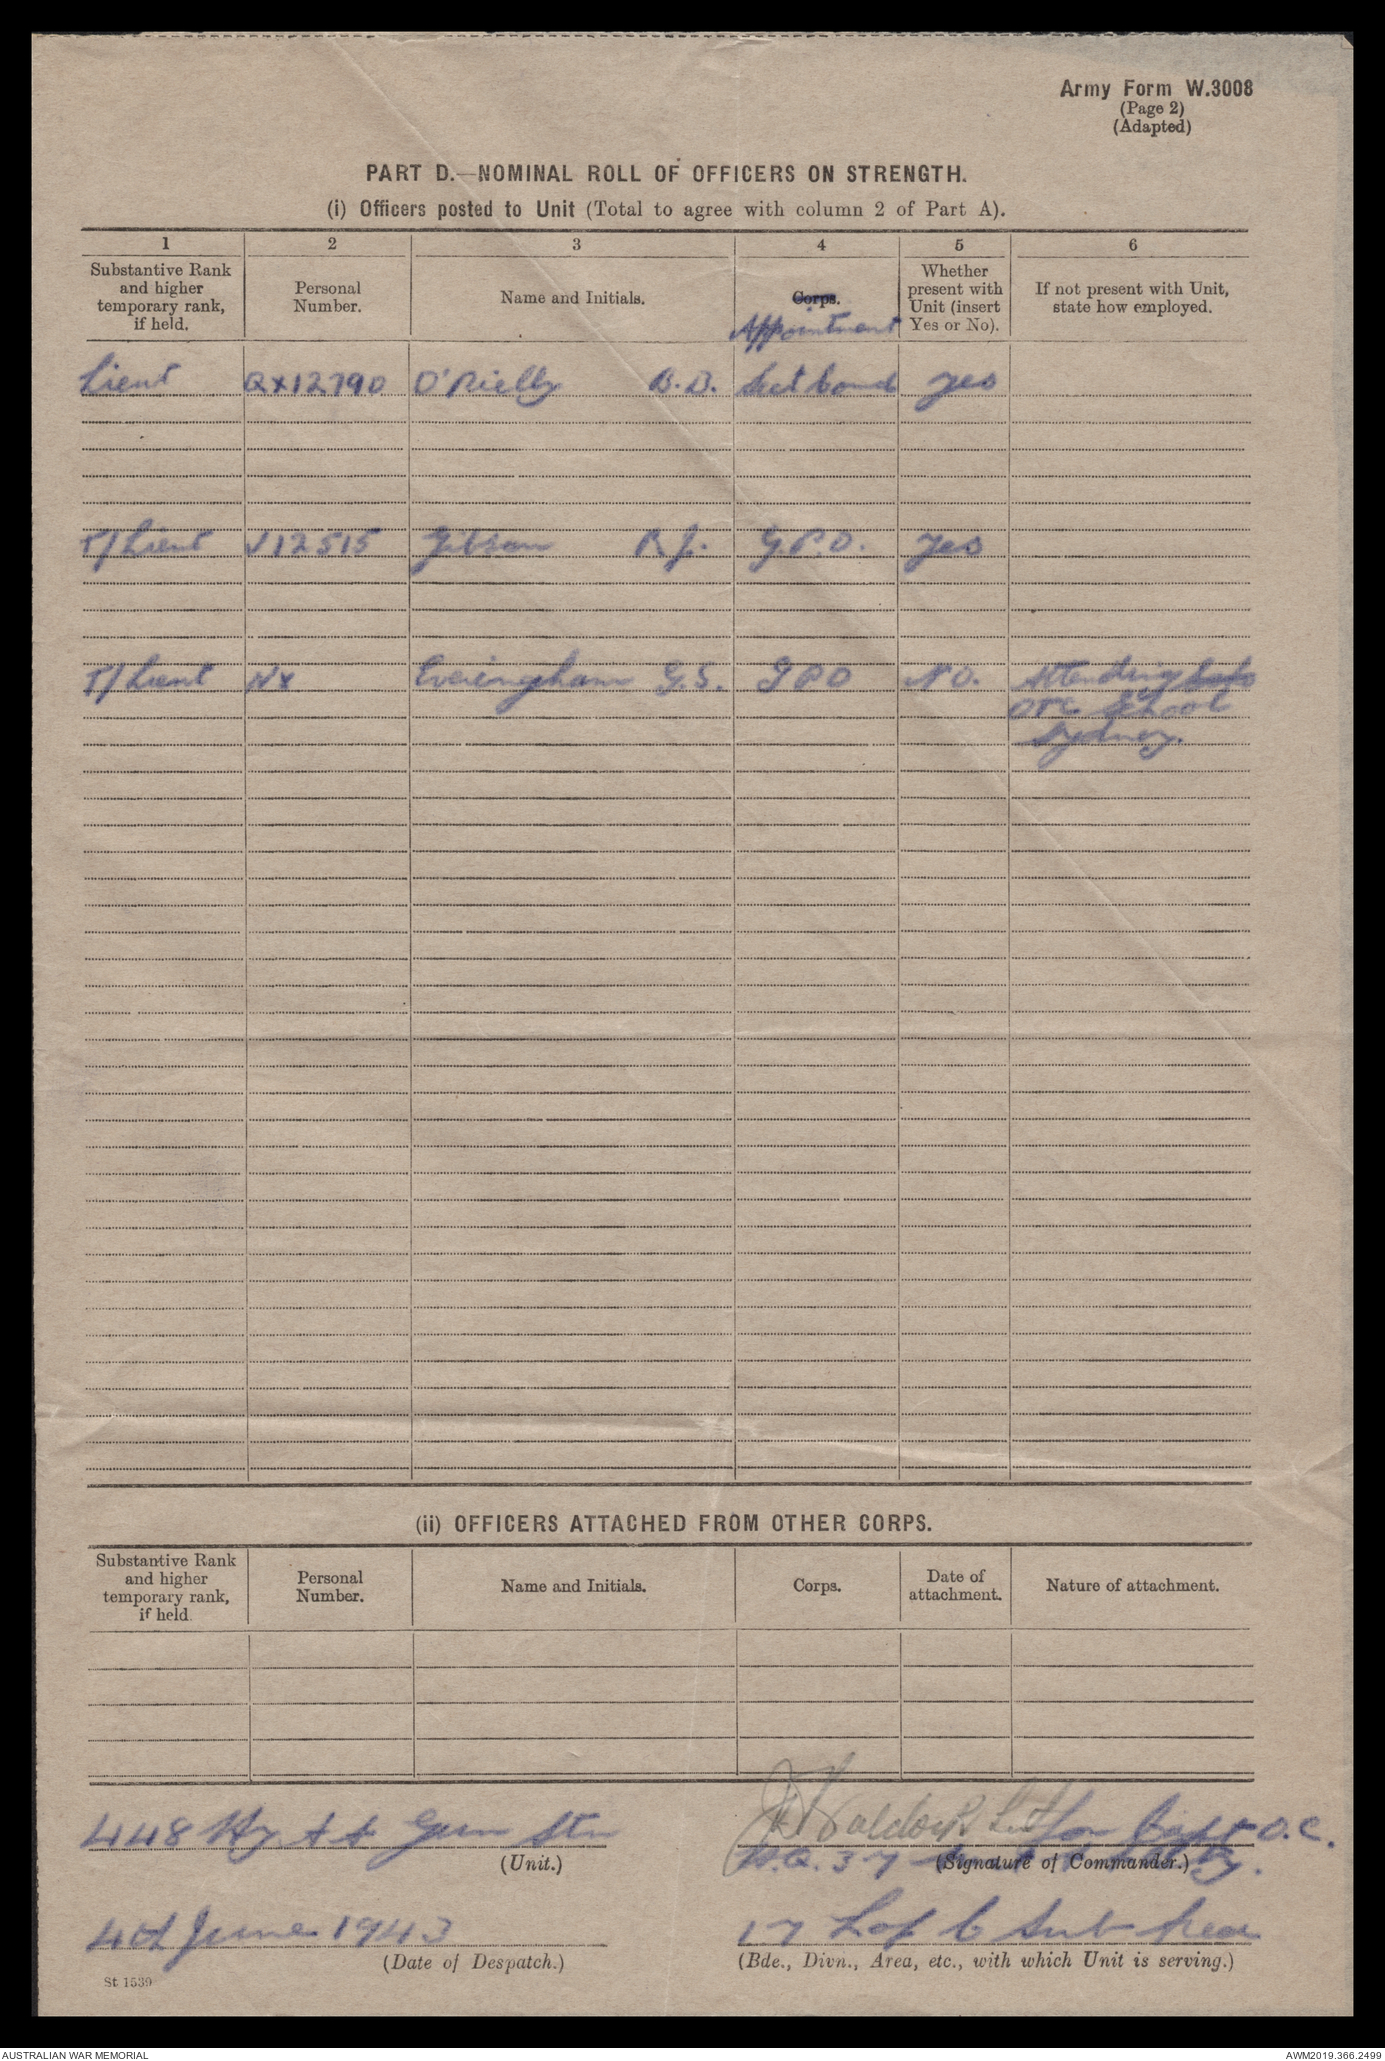 Army Form W.3008
(Page 2)
(Adapted)
PART D.—NOMINAL ROLL OF OFFICERS ON STRENGTH.
(i) Officers posted to Unit (Total to agree with column 2 of Part A).
1 2 3 4 5 6
Substantive Rank and higher temporary rank, if held.
Personal Number.
Name and Initials.
Corps.
Appointment
Whether present with Unit (insert Yes or No).
If not present with Unit, state how employed.
Lieut QX12790 O'Rielly B.D. Sect Comd yes
T/Lieut V12515 Gibson R.J. G.P.O. yes
T/Lieut NX Everingham G.S. GPO NO. Attending
School
Sydney.
(ii) OFFICERS ATTACHED FROM OTHER CORPS.
Substantive Rank and higher temporary rank, if held.
Personal Number.
Name and Initials.
Corps.
Date of attachment.
Nature of attachment.
448 Hy A A Gun Stn
(Unit.)
Lieut for Capt O.C.
H.Q. 37 Bty.
(Signature of Commander.)
4th June 1943
(Date of Despatch.)
17 L of C Sub Area
(Bde., Divn., Area, etc., with which Unit is serving.)
St 1539
AUSTRALIAN WAR MEMORIAL
AWM2019.366.2499